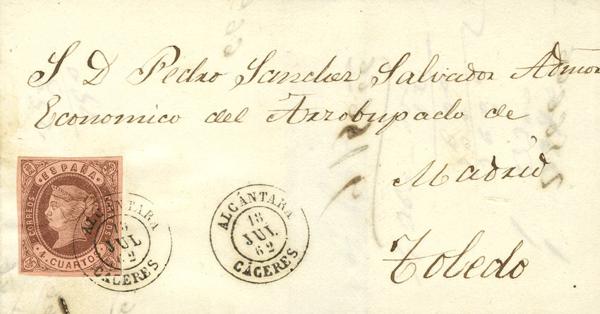 S D Pedro Sanchez Salvador Admor
Economico del Arzobispado de
Madrid
Toledo
ESPAÑA
CORREOS
4 CUARTOS
ALCÁNTARA
18
JUL
62
CÁCERES
ALCÁNTARA
18
JUL
62
CÁCERES